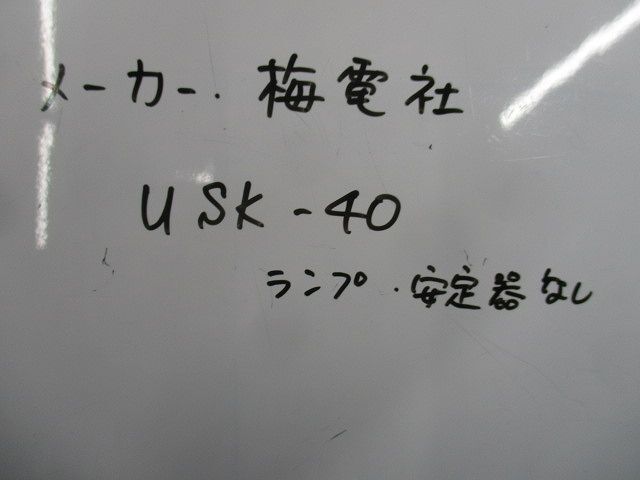 メーカー. 梅電社
USK-40
ランプ.安定器なし